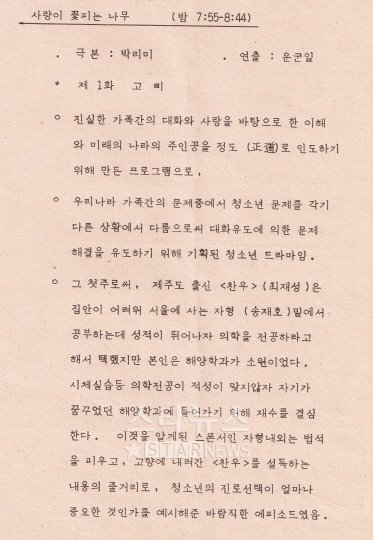 사랑이 꽃피는 나무 (밤 7:55-8:44)
. 극본 : 박리미 . 연출 : 운군일
* 제 1화 고 삐
o 진실한 가족간의 대화와 사랑을 바탕으로 한 이해
와 미래의 나라의 주인공을 정도 (正道)로 인도하기
위해 만든 프로그램으로,
o 우리나라 가족간의 문제중에서 청소년 문제를 각기
다른 상황에서 다룸으로써 대화유도에 의한 문제
해결을 유도하기 위해 기획된 청소년 드라마임.
o 그 첫주로써, 제주도 출신 <찬우> (최재성)은
집안이 어려워 서울에 사는 자형 (송재호)밑에서
공부하는데 성적이 뛰어나자 의학을 전공하라고
해서 택했지만 본인은 해양학과가 소원이었다.
시체실습등 의학전공이 적성이 맞지않자 자기가
꿈꾸었던 해양학과에 들어가기 위해 재수를 결심
한다. 이것을 알게된 스폰서인 자형내외는 법석
을 피우고, 고향에 내려간 <찬우>를 설득하는
내용의 줄거리로, 청소년의 진로선택이 얼마나
중요한 것인가를 예시해준 바람직한 에피소드였음.
스타뉴스
STARNEWS